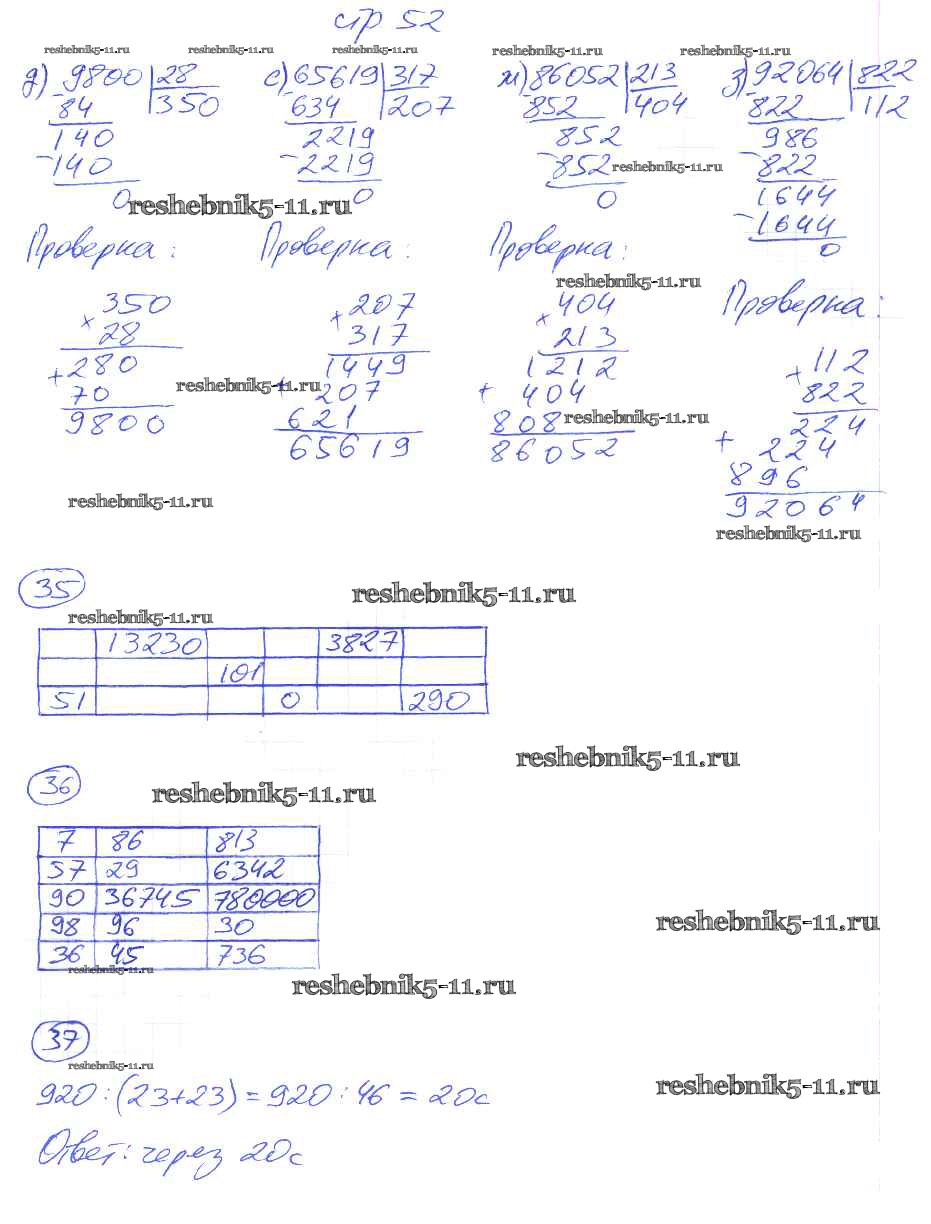 стр 52
reshebnik5-11.ru reshebnik5-11.ru reshebnik5-11.ru reshebnik5-11.ru reshebnik5-11.ru
д) 9800 | 28 с) 65619 | 317 м) 86052 | 213 з) 92064 | 822
- 84 350 - 634 207 - 852 404 - 822 112
140 2219 852 986
- 140 - 2219 - 852 reshebnik5-11.ru - 822
0 reshebnik5-11.ru 0 0 1644
- 1644
0
Проверка: Проверка: Проверка:
reshebnik5-11.ru
Проверка:
350 207 404
× 28 × 317 × 213
280 1449 1212 112
+ 70 reshebnik5-11.ru + 207 + 404 × 822
9800 621 808 reshebnik5-11.ru 224
65619 86052 + 224
896
92064
reshebnik5-11.ru reshebnik5-11.ru
35 reshebnik5-11.ru
reshebnik5-11.ru
13230 3827
101
51 0 290
reshebnik5-11.ru
36 reshebnik5-11.ru
7 86 813
57 29 6342
90 36745 780000
98 96 30 reshebnik5-11.ru
36 45 736
reshebnik5-11.ru
reshebnik5-11.ru
37
reshebnik5-11.ru
reshebnik5-11.ru
920:(23+23)=920:46=20с
Ответ: через 20с